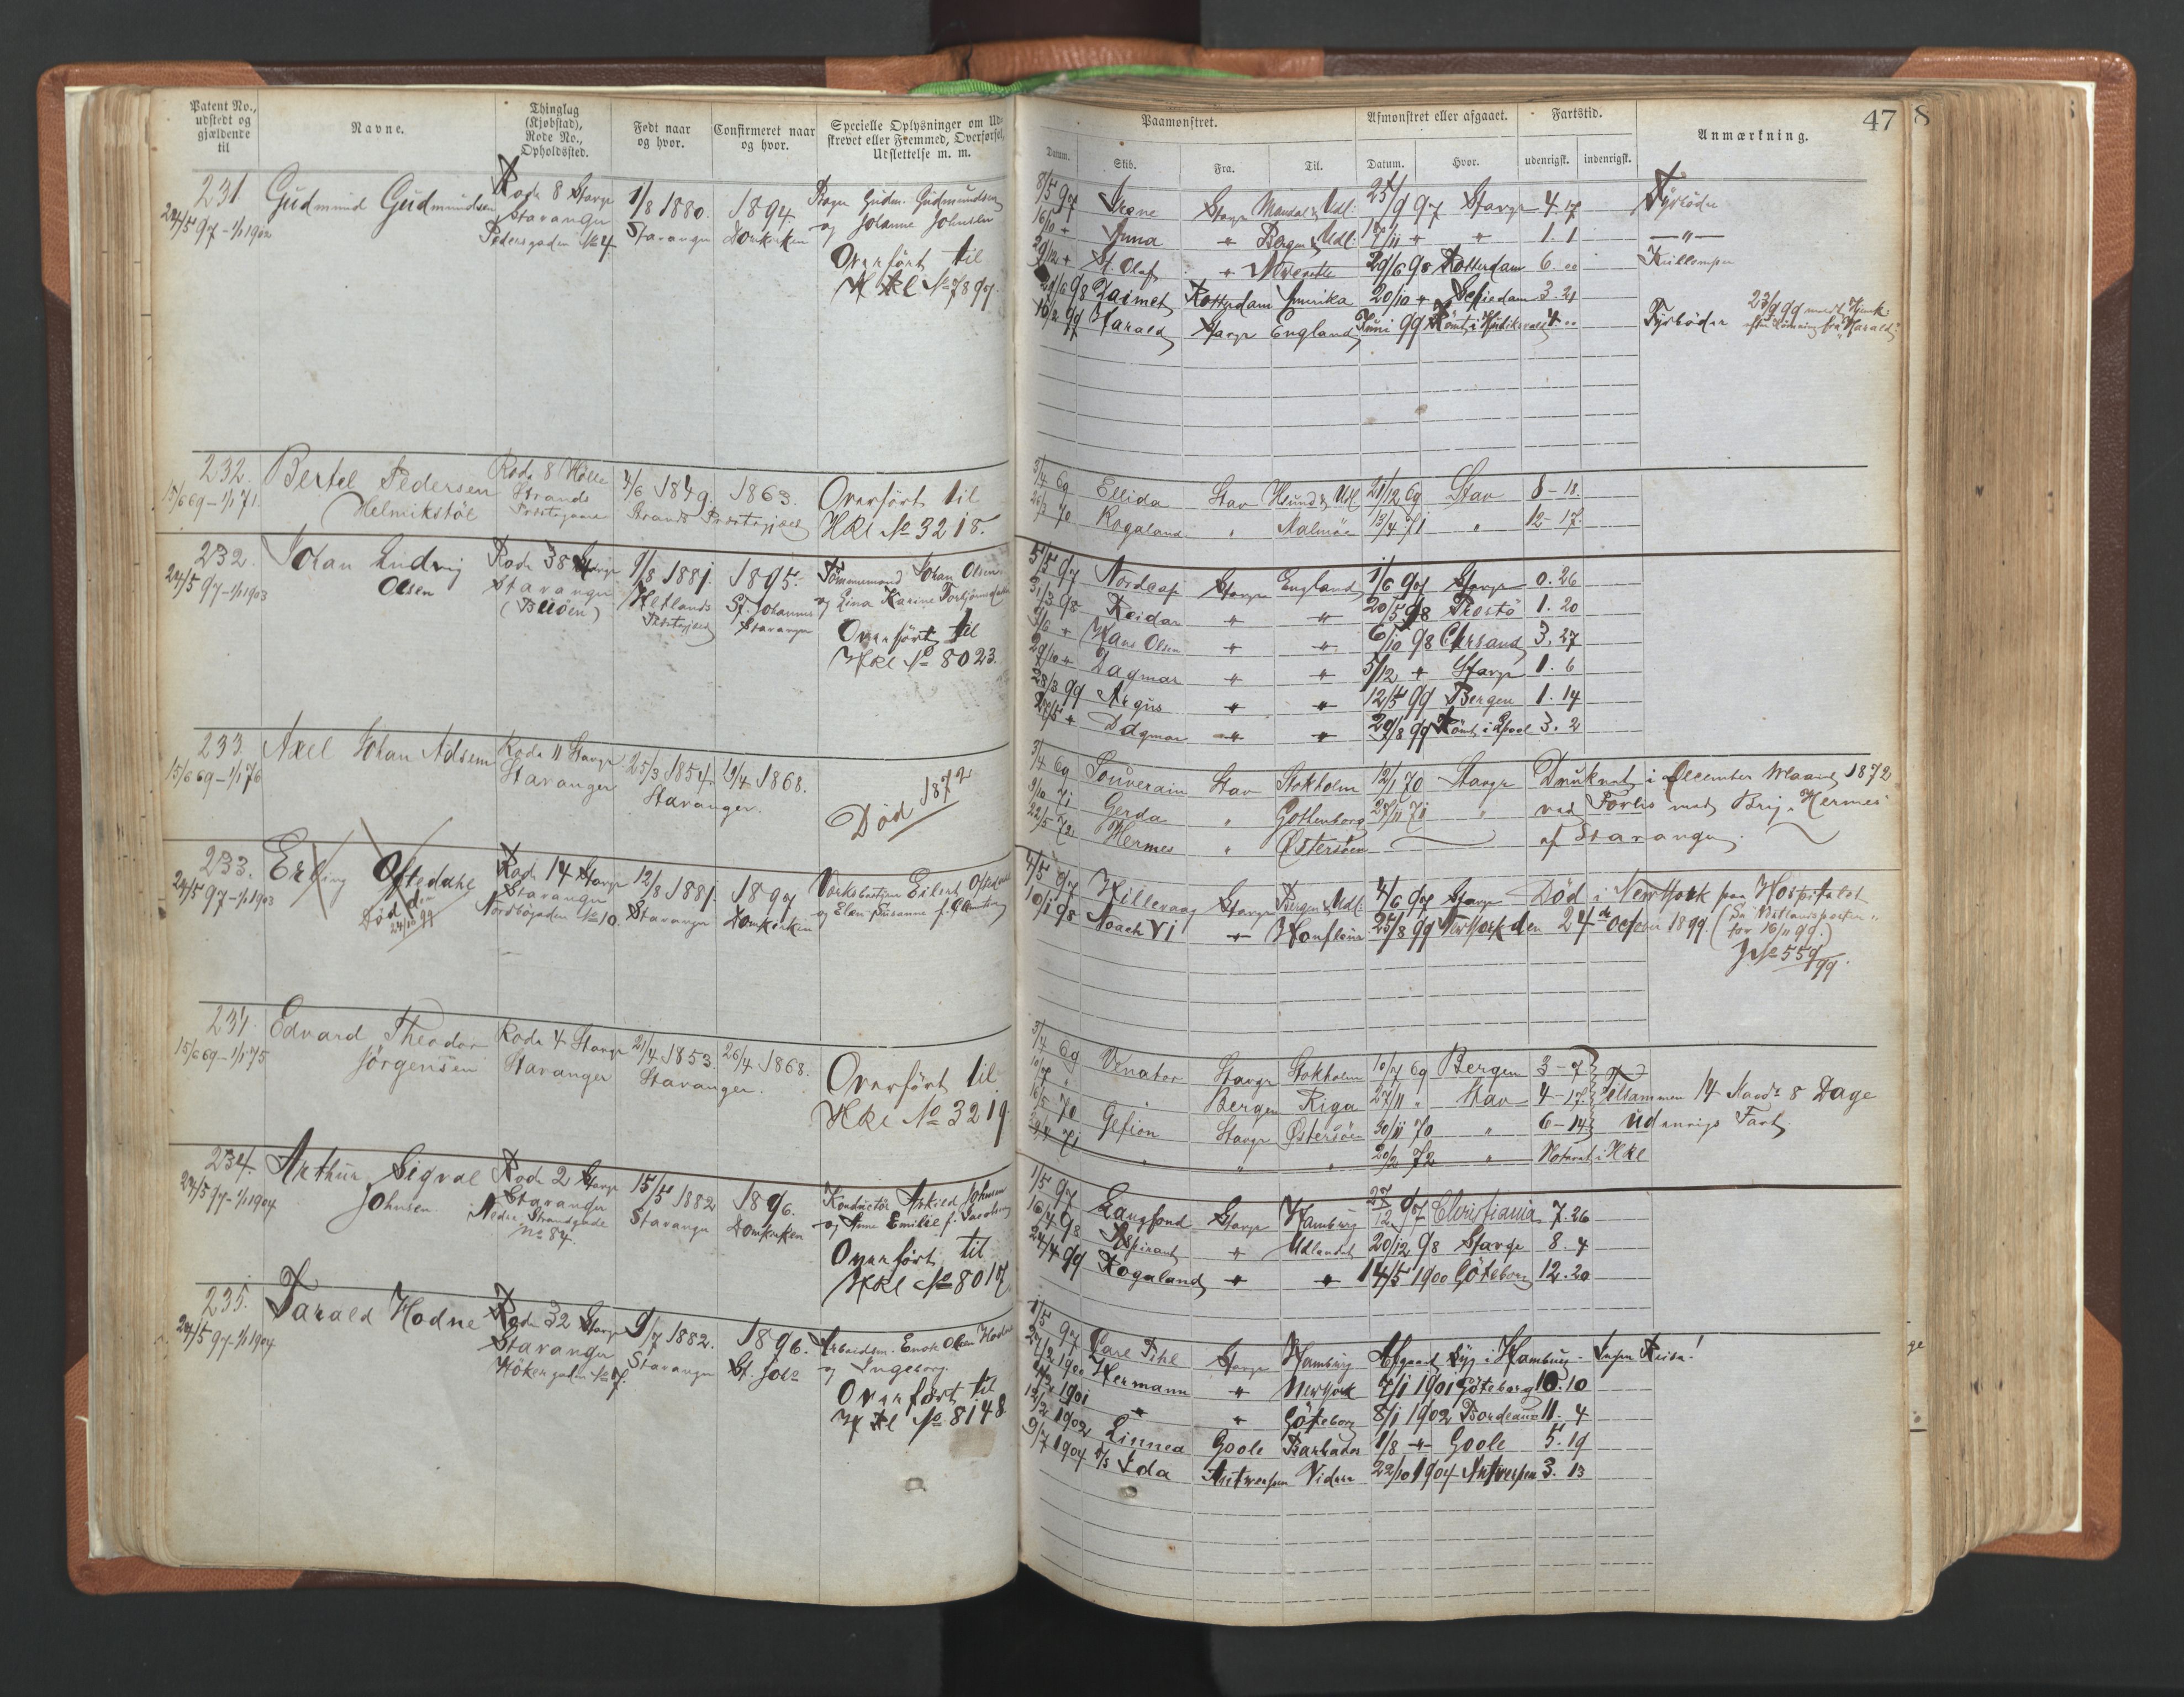 Patent No.,
udstedt og
gjældende
til
Navne.
Thinglag
(Kjøbstad),
Rode No.,
Opholdssted.
Født naar
og hvor.
Confirmeret naar
og hvor.
Specielle Oplysninger om Ud-
skrevet eller Fremmed, Overførsel,
Udslettelse m. m.
231.
24/5 97 - 1/1 1902
Gudmund Gudmundsen
Rode 8 Stavgr
Stavanger
Pedersgaden No 4.
1/8 1880.
Stavanger
1894.
Domkirken
Gudm. Gudmundsen
og Johanne Johnsen
Overført til
H kl No 7897.
232.
15/6 69 - 1/1 71.
Bertel Pedersen
Helmikstøl
Rode 8 Holle
Strands
Præstegjæld
4/6 1849.
Strands Præstegjæld
1863.
Overført til
Hkl No 3218.
232.
24/5 97 - 1/1 1903
Johan Ludvig
Olsen
Rode 38 Stavgr
Stavanger
(Buøen)
9/8 1881.
Hetlands
Præstegjæld
1895.
St. Johannes
Stavanger
Tømmermand Johan Olsen
og Lina Karine
Overført til
Hkl No 8023.
233.
15/6 69 - 1/1 76
Axel Johan Adsem
Rode 11 Stavgr
Stavanger
25/3 1854.
Stavanger.
19/4 1868.
Død 1872
233.
24/5 97 - 1/1 1903
Erling Oftedahl
Død d.
24/10 99
Rode 14 Stavgr
Stavanger
Nordbøgaden No 10.
12/8 1881.
Stavanger
1897
Domkirken
Værksbestyrer Eilert Oftedahl
og Elen Susanne f.
234.
15/6 69 - 1/1 75
Edvard Theodor
Jörgensen
Rode 4 Stavgr
Stavanger
21/4 1853.
Stavanger.
26/4 1868.
Overført til
Hkl No 3219.
234.
24/5 97 - 1/1 1904
Arthur Sigval
Johnsen.
Rode 2 Stavgr
Stavanger
Nedre Strandgade
No 84.
15/5 1882
Stavanger
1896.
Domkirken
Konductør Johnsen
og Anne Emilie f. Jacobsen
Overført til
Hkl No 8017.
235.
24/5 97 - 1/1 1904
Tarald Hodne
Rode 32 Stavgr
Stavanger
Hökergaden No 7.
9/7 1882.
Stavanger
1896.
St. Johs
Arbeidsm. Enok Olsen Hodne
og Ingeborg.
Overført til
H kl No 8148
47
Paamønstret.
Afmønstret eller afgaaet.
Fartstid.
Anmærkning.
Datum.
Skib.
Fra.
Til.
Datum.
Hvor.
udenrigsk.
indenrigsk.
8/5 97 Irene Stavgr Mandal & Udl. 25/9 97 Stavgr 4. 17 Fyrbøder
16/10 " Anna " Bergen & Udl: " " 1. 1 — " —
29/12 " St. Olaf " 29/6 98 Rotterdam 6. 00 Kullemper
98 Zaimet Rotterdam Amerika 20/10 " Schiedam 3. 21
99 Harald Stavgr England Juni 99 Rømt i 4. 00 Fyrbøder
23/9 99
efter Rømning fra "Harald".
3/4 69 Ellida Stav & Udl 21/12 69 Stav 8 - 18.
70 Rogaland " Malmöe 13/4 71 " 12 - 17.
5/5 97 Nordcap Stavgr England 1/6 97 Stavgr 0. 26
31/3 98 Reidar " " 20/5 98 1. 20
9/6 " Hans Olsen " " 6/10 98 Chrsand 3. 27
29/10 " Dagmar " " 5/12 " Stavgr 1. 6
28/3 99 Argus " " 12/5 99 Bergen 1. 14
27/5 " Dagmar " " 29/8 99 Rømt i Lpool 3. 2
3/4 69 Souverain Stav Stokholm 12/1 70 Stavgr Druknet i December Maaned 1872
9/10 71 Gerda " Gothenborg 28/11 71 " ved Forlis med Brig "Hermes"
22/5 72 Hermes " Østersøen af Stavanger.
4/5 97 Hillevaag Stavgr Bergen & Udl. 4/6 97 Stavgr Død i NewYork paa Hospitalet
10/1 98 Noach VI " Honfleur 25/8 99 NewYork den 24de October 1899. (Se "Vestlandsposten"
for 16/11 99.)
J. No 559/99.
3/4 69 Venator Stavgr Stokholm 10/7 69 Bergen 3 - 7
10/7 " " Bergen Riga 27/11 " Stav 4 - 17. Tilsammen 14 Maadr 8 Dage
16/5 70 Gefion Stavgr Østersøen 30/11 70 " 6 - 14. udenrigs Fart
71 " " " 20/2 72 " Noteret i Hkl
1/5 97 Langfond Stavgr Hamburg 27/12 97 Christiania 7. 26
16/4 98 Aspirant " Udlandet 20/12 98 Stavgr 8. 4
24/4 99 Rogaland " " 14/5 1900 Göteborg 12. 20
1/5 97 Carl Pihl Stavgr Hamburg Afgaaet syg i Hamburg - Ingen Reise!
27/2 1900 Hermann " NewYork 7/1 1901 Göteborg 10. 10
1901 " " Göteborg 8/1 1902 Bordeaux 11. 4
12/2 1902 Linnea Goole Barbados 1/8 " Goole 5. 19
9/7 1904 D/S Ida Antwerpen Videre 22/10 1904 Antwerpen 3. 13